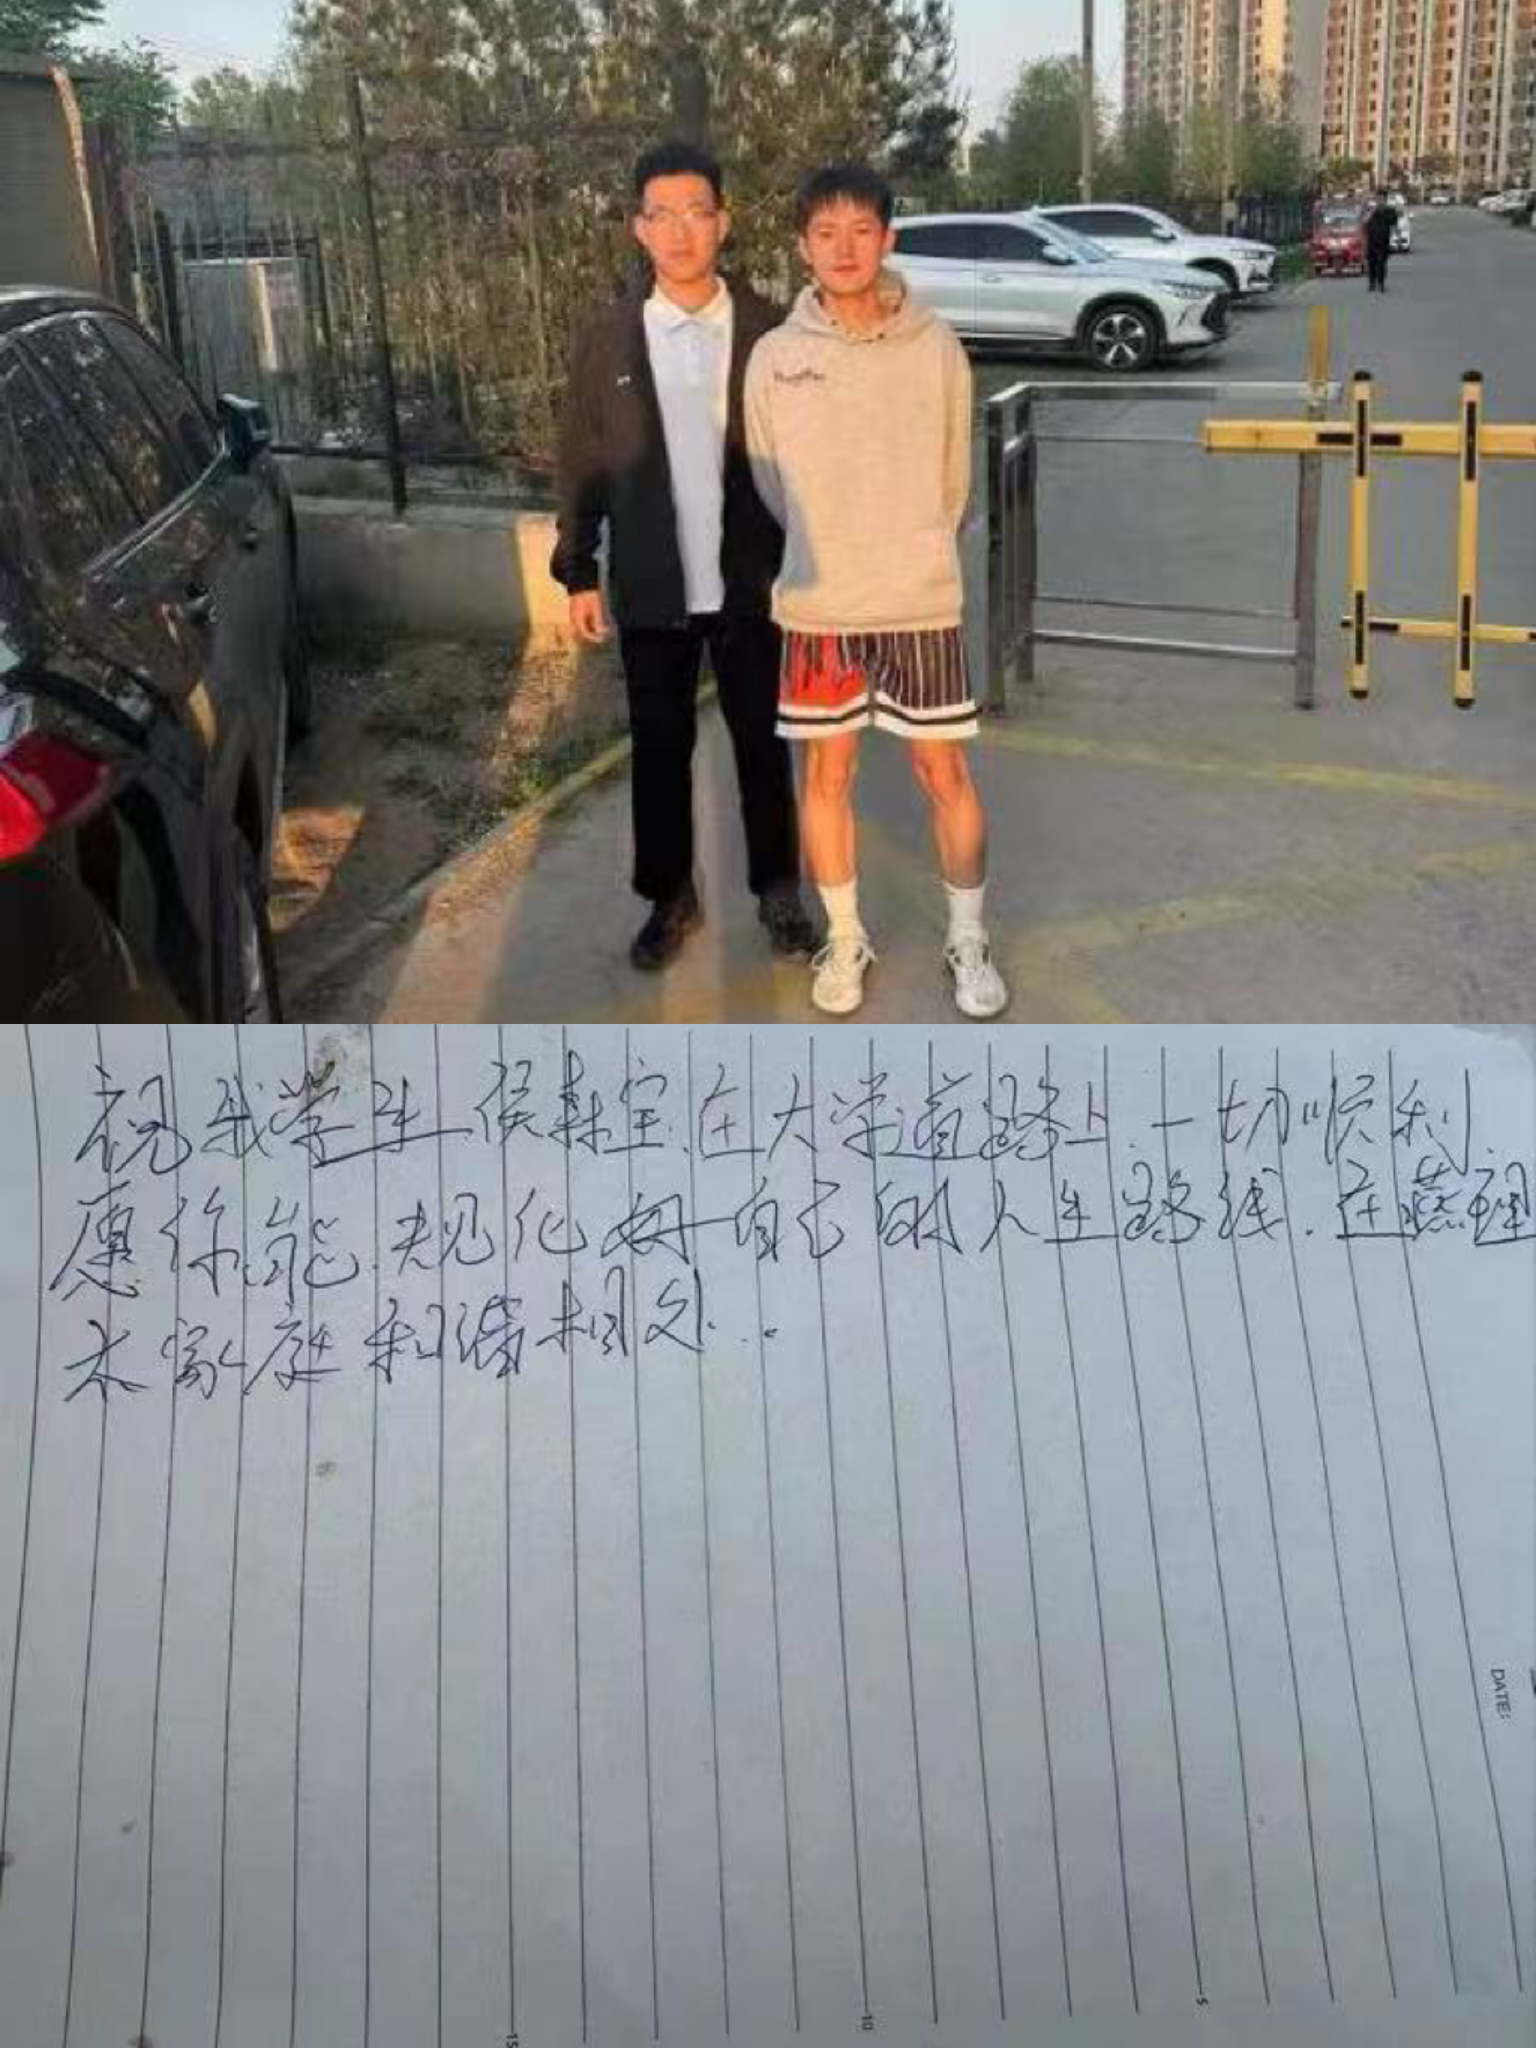 祝我学生侯森宝.在大学道路上.一切顺利.
愿你能.规化好自己的人生路线.在燕理
木家庭和谐相处...
DATE:
15
10
5